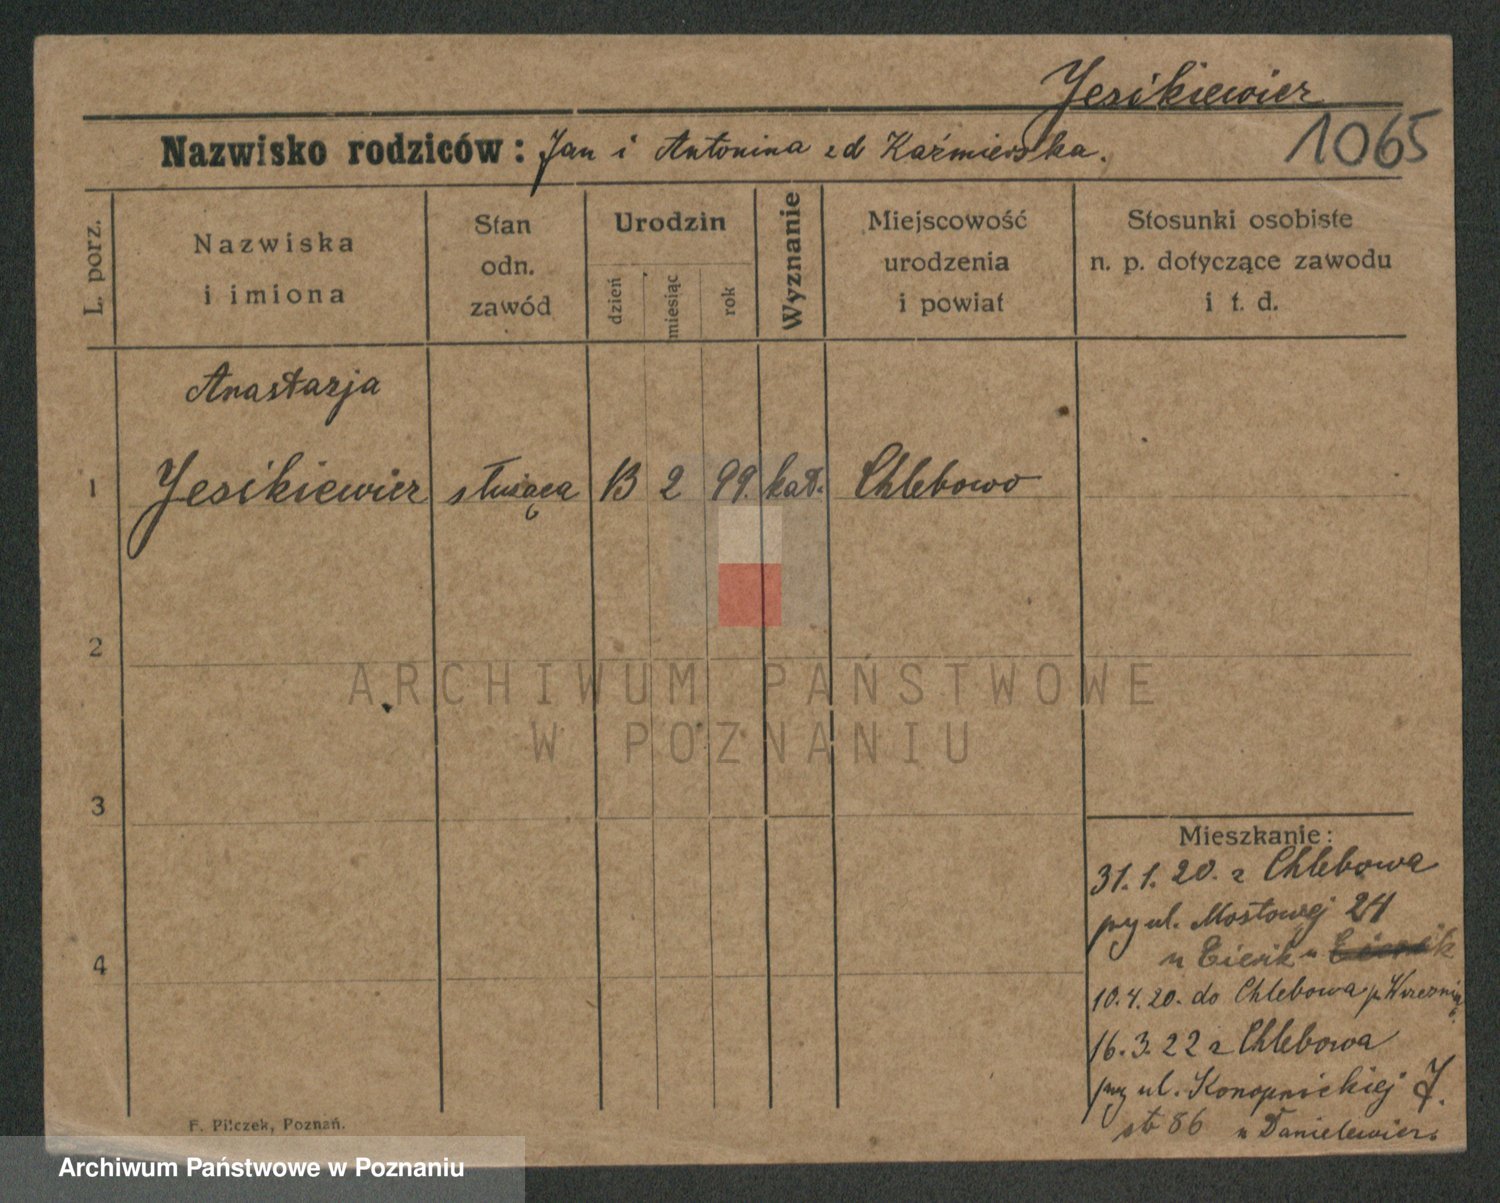 Jesikiewicz
Nazwisko rodziców: Jan i Antonina zd Kaźmierska.
1065
L. porz.
Nazwiska
i imiona
Stan
odn.
zawód
Urodzin
dzień
miesiąc
rok
Wyznanie
Miejscowość
urodzenia
i powiat
Stosunki osobiste
n. p. dotyczące zawodu
i t. d.
Anastazja
1 Jesikiewicz służąca 13 2 99. kat. Chlebowo
2
3
4
Mieszkanie:
31.1.20. z Chlebowa
przy ul. Mostowej 24
u
10.4.20. do Chlebowa p. Wrześnią
16.3.22 z Chlebowa
przy ul. Konopnickiej 7.
str 86 u Danielewicz
F. Pilczek, Poznań.
ARCHIWUM PAŃSTWOWE
W POZNANIU
Archiwum Państwowe w Poznaniu